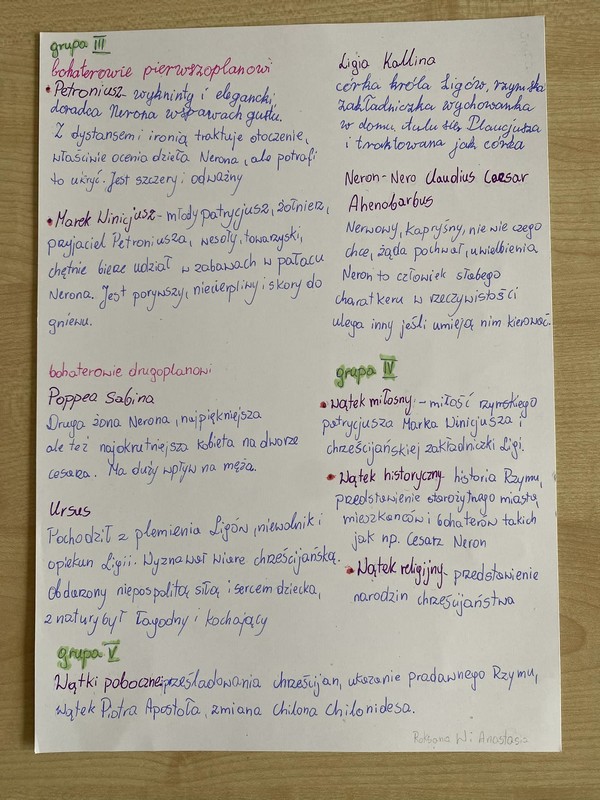 grupa III
bohaterowie pierwszoplanowi
• Petroniusz wykwintny i elegancki,
doradca Nerona w sprawach gustu.
Z dystansem i ironią traktuje otoczenie,
właściwie ocenia dzieła Nerona, ale potrafi
to ukryć. Jest szczery i odważny
• Marek Winicjusz - młody patrycjusz, żołnierz,
przyjaciel Petroniusza, wesoły, towarzyski,
chętnie bierze udział w zabawach w pałacu
Nerona. Jest porywszy, niecierpliwy i skory do
gniewu.
bohaterowie drugoplanowi
Poppea Sabina
Druga żona Nerona, najpiękniejsza
ale też najokrutniejsza kobieta na dworze
cesarza. Ma duży wpływ na męża.
Ursus
Pochodził z plemienia Ligów, niewolnik i
opiekun Ligii. Wyznawał wiarę chrześcijańską.
Obdarzony niepospolitą siłą i sercem dziecka,
z natury był łagodny i kochający
Ligia Kallina
córka króla Ligów, rzymska
zakładniczka wychowanka
w domu Aulusa Plaucjusza
i traktowana jak córka
Neron - Nero Claudius Caesar
Ahenobarbus
Nerwowy, kapryśny, nie wie czego
chce, żąda pochwał, uwielbienia
Neron to człowiek słabego
charatkeru w rzeczywistości
ulega inny jeśli umieją nim kierować.
grupa IV
• Wątek miłosny - miłość rzymskiego
patrycjusza Marka Winicjusza i
chrześcijańskiej zakładniczki Ligi.
• Wątek historyczny - historia Rzymu,
przedstawienie starożytnego miasta,
mieszkańców i bohaterów takich
jak np. Cesarz Neron
• Wątek religijny - przedstawienie
narodzin chrześcijaństwa
grupa V
Wątki poboczne: prześladowania chrześcijan, ukazanie pradawnego Rzymu,
wątek Piotra Apostoła, zmiana Chilona Chilonidesa.
Roksana W i Anastasia